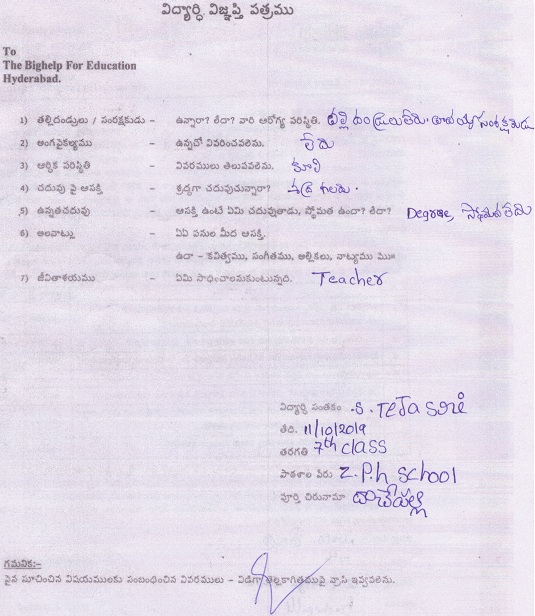 విద్యార్థి విజ్ఞప్తి పత్రము
To
The Bighelp For Education
Hyderabad.
1) తల్లిదండ్రులు / సంరక్షకుడు – ఉన్నారా? లేదా? వారి ఆరోగ్య పరిస్థితి. తల్లి దండ్రులులేరు. తాతయ్య సంరక్షకుడు
2) అంగవైకల్యము – ఉన్నచో వివరించవలెను. లేదు
3) ఆర్థిక పరిస్థితి – వివరములు తెలుపవలెను. కూలి
4) చదువు పై ఆసక్తి – శ్రద్ధగా చదువుచున్నారా? శ్రద్ధ గలదు.
5) ఉన్నతచదువు – ఆసక్తి ఉంటే ఏమి చదువుతాడు, స్థోమత ఉందా? లేదా? Degree, స్తోమత లేదు
6) అలవాట్లు – ఏఏ పనుల మీద ఆసక్తి.
ఉదా – కవిత్వము, సంగీతము, అల్లికలు, నాట్యము మొ॥
7) జీవితాశయము – ఏమి సాధించాలనుకుంటున్నది. Teacher
విద్యార్థి సంతకం .S. TeJa Sri
తేది. 11/10/2019
తరగతి 7th class
పాఠశాల పేరు Z.P.h school
పూర్తి చిరునామా దాచేపల్లి
గమనిక:-
పైన సూచించిన విషయములకు సంబంధించిన వివరములు – విడిగా తెల్లకాగితముపై వ్రాసి ఇవ్వవలెను.